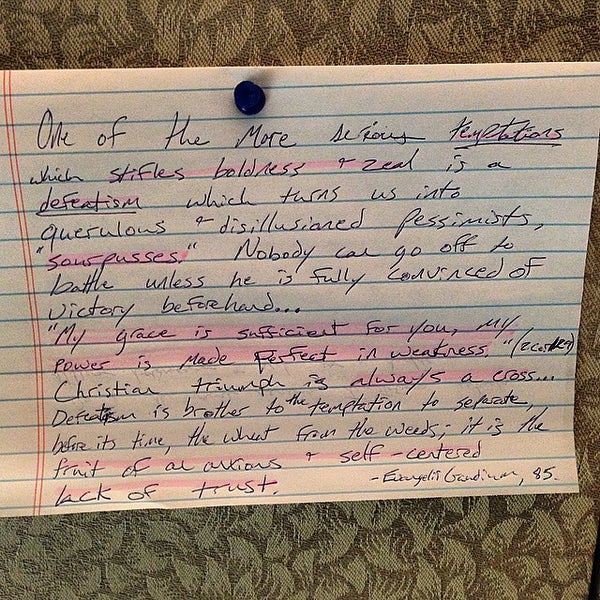 One of the more serious temptations
which stifles boldness + zeal is a
defeatism which turns us into
querulous + disillusioned pessimists,
"sourpusses." Nobody can go off to
battle unless he is fully convinced of
victory beforehand...
"My grace is sufficient for you, my
power is made perfect in weakness."
Christian triumph is always a cross...
Defeatism is brother to the temptation to separate,
before its time, the wheat from the weeds; it is the
fruit of an anxious + self-centered
lack of trust.
- Evangelii Gaudium, 85.